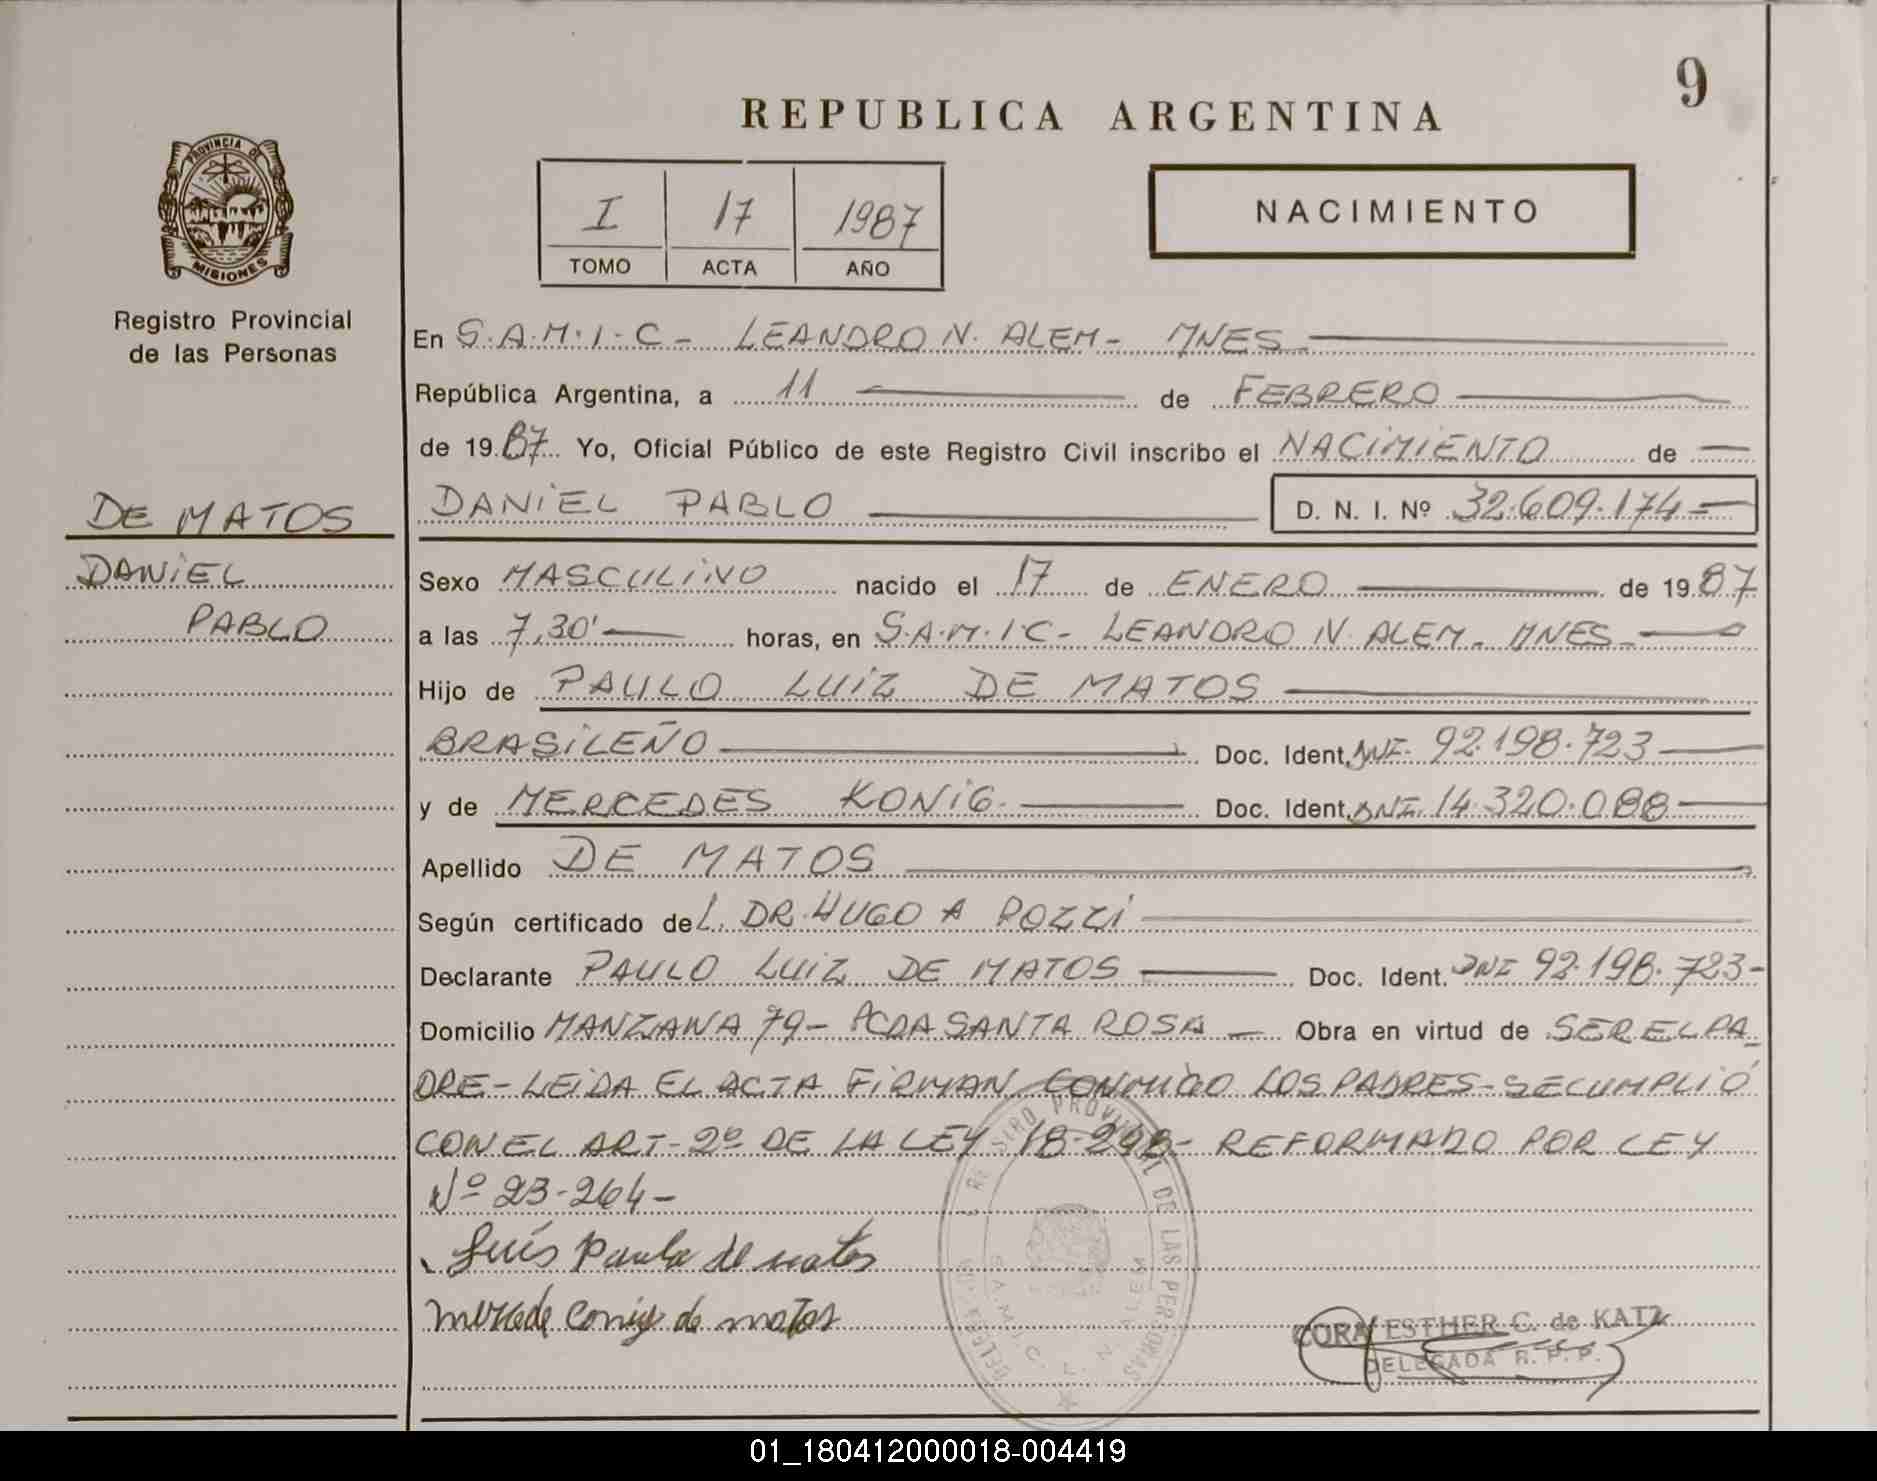 9
REPUBLICA ARGENTINA
PROVINCIA DE
MISIONES
I 17 1987
TOMO ACTA AÑO
NACIMIENTO
Registro Provincial
de las Personas
DE MATOS
DANIEL
PABLO
En S.A.M.I.C - LEANDRO N. ALEM - MNES
República Argentina, a 11 de FEBRERO
de 1987 Yo, Oficial Público de este Registro Civil inscribo el NACIMIENTO de
DANIEL PABLO D. N. I. Nº 32.609.174
Sexo MASCULINO nacido el 17 de ENERO de 1987
a las 7,30' horas, en S.A.M.I.C - LEANDRO N. ALEM - MNES
Hijo de PAULO LUIZ DE MATOS
BRASILEÑO Doc. Ident. DNI. 92.198.723
y de MERCEDES KONIG Doc. Ident. DNI. 14.320.088
Apellido DE MATOS
Según certificado del. DR. HUGO A POZZI
Declarante PAULO LUIZ DE MATOS Doc. Ident. DNI 92.198.723-
Domicilio MANZANA 79 - PCDA SANTA ROSA Obra en virtud de SER EL PA-
DRE - LEIDA EL ACTA FIRMAN CONMIGO LOS PADRES - SE CUMPLIÓ
CON EL ART - 2º DE LA LEY 18-248 - REFORMADO POR LEY
Nº 23-264 -
Luis Paulo de matos
mercede Conig de matos
REGISTRO PROVINCIAL DE LAS PERSONAS
S.A.M.I.C. L. N. ALEM
CORA ESTHER C. de KATZ
DELEGADA R. P. P.
01_180412000018-004419